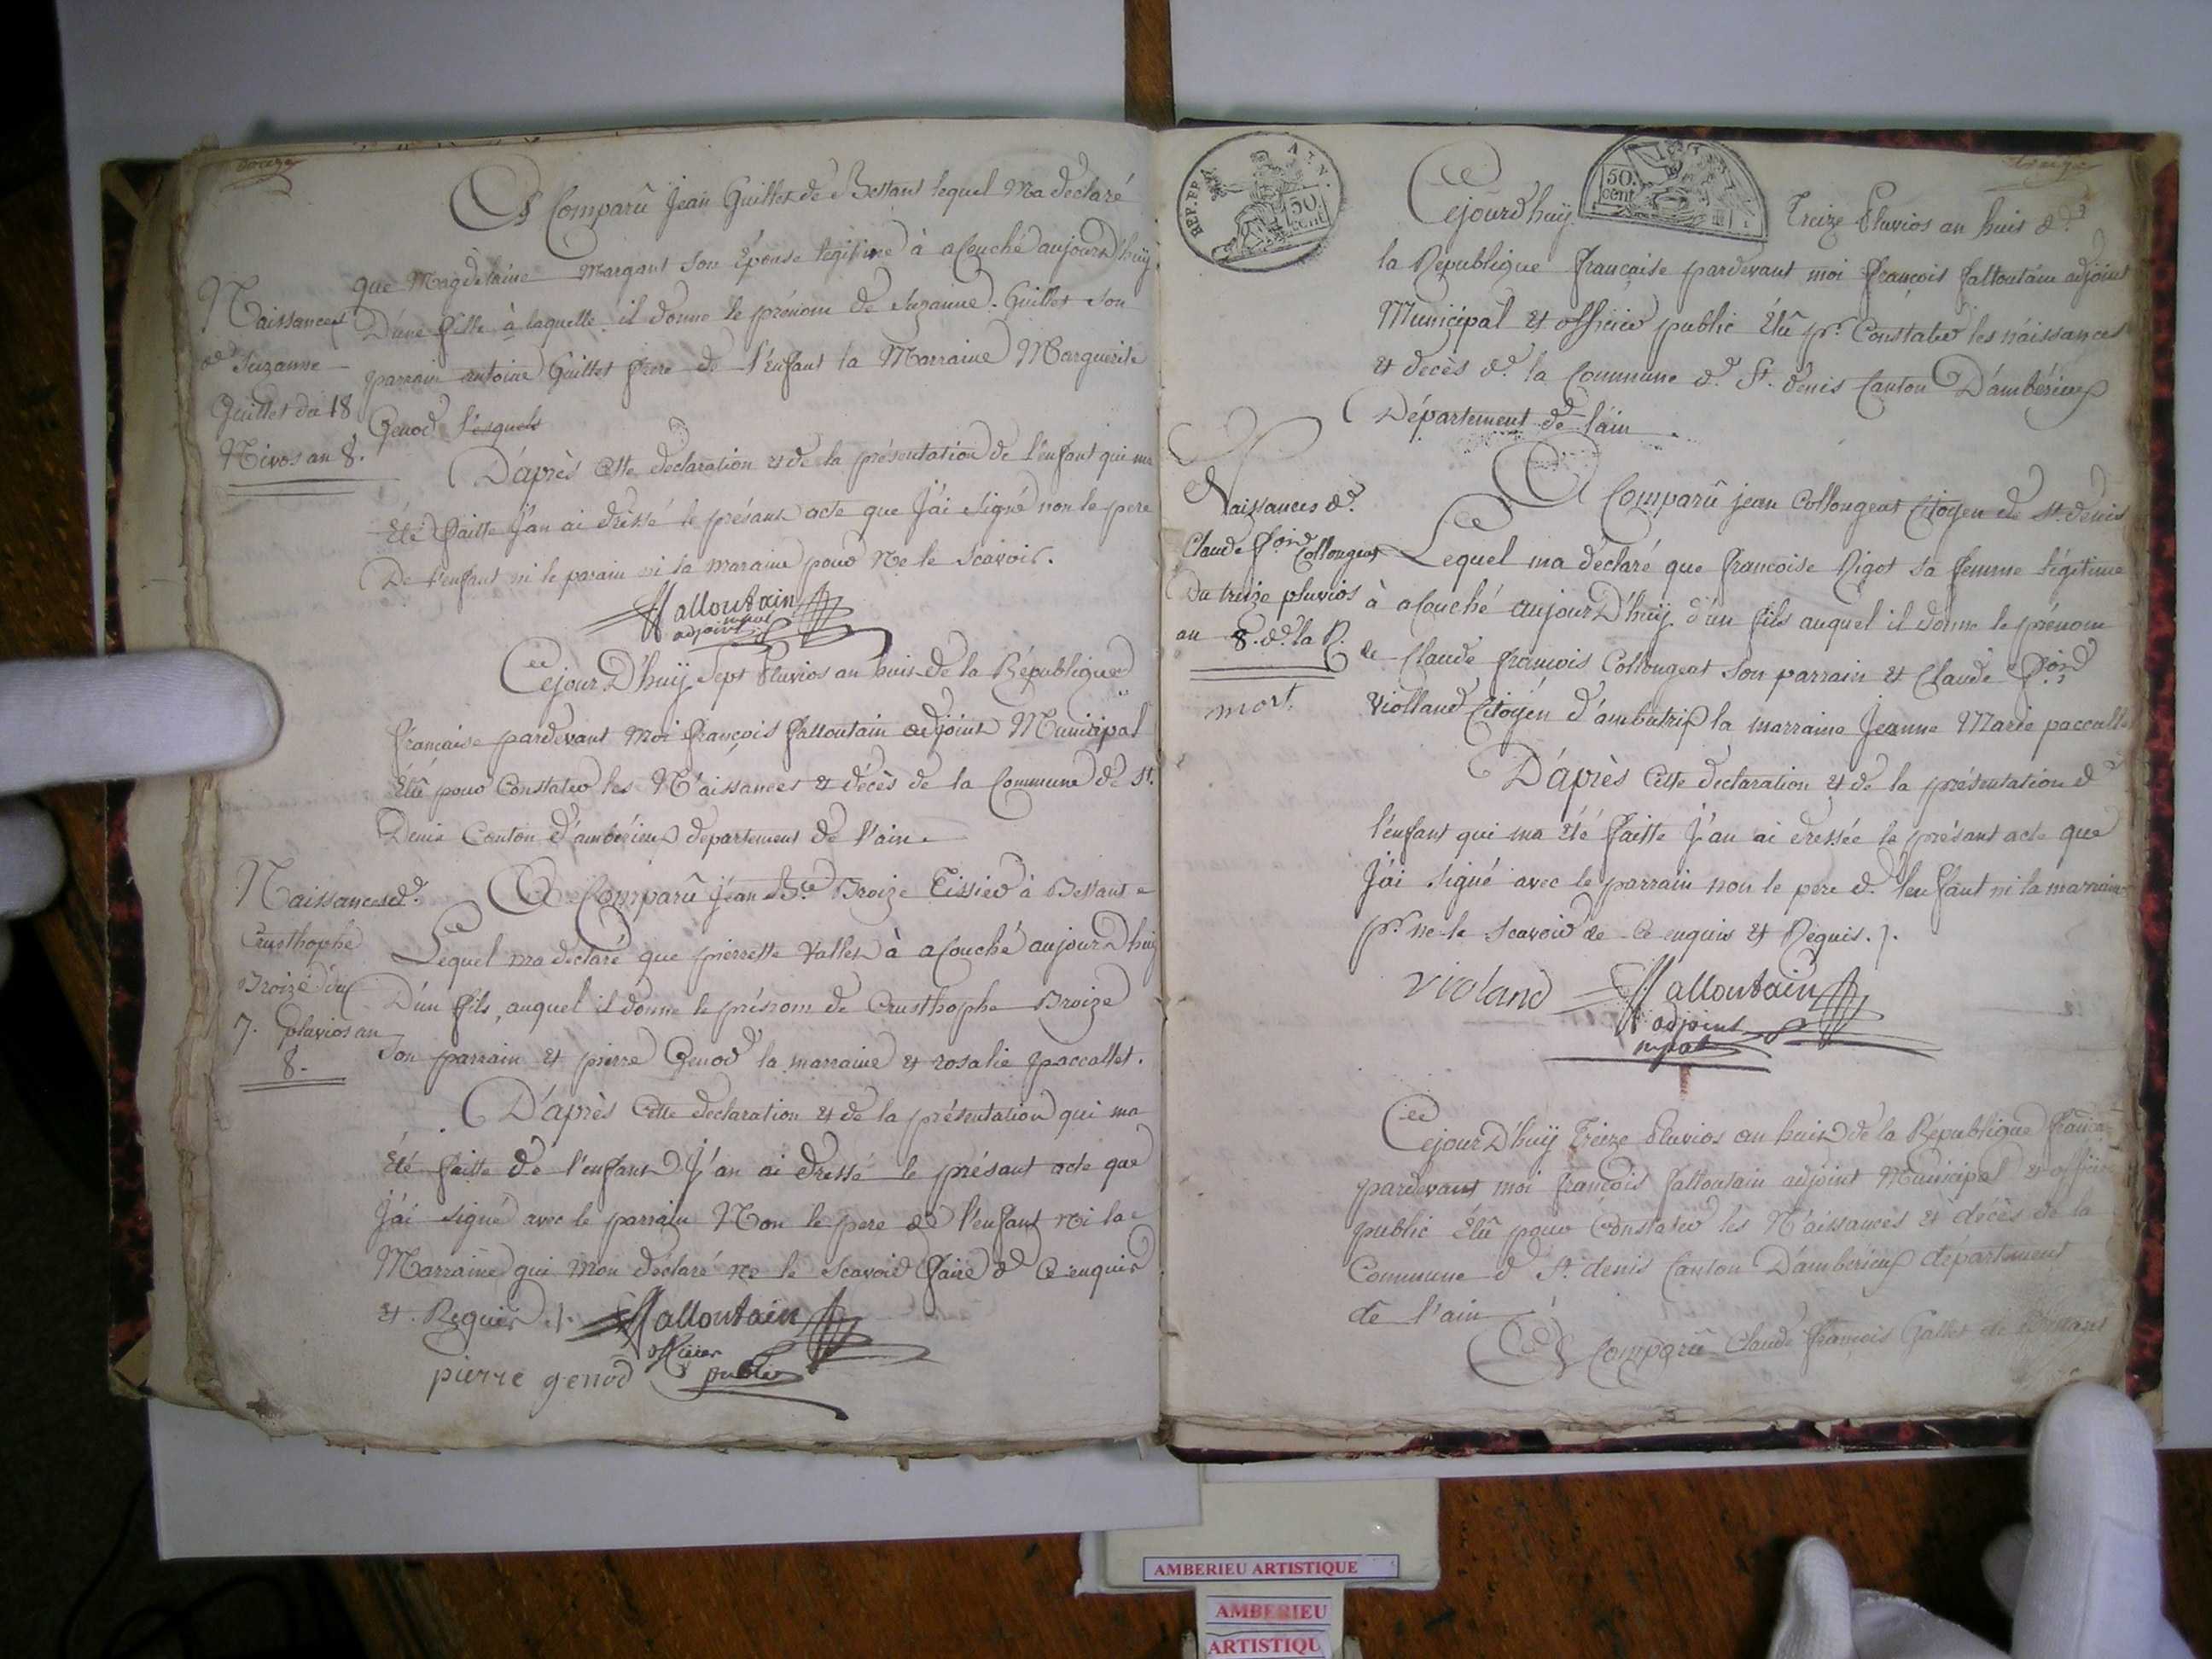 douze
Est Comparû Jean Guillet de Bettant lequel Ma declaré
que Magdelaine Margant son Epouse legitime à acouché aujourd'huy
D'une fille à laquelle il donne le prénom de Suzanne Guillet son
parrain antoine Guillet frere de l'Enfant la Marraine Marguerite
Genod lesquels
Naissances
de Suzanne
Guillet du 18
Nivos an 8.
D'après Cette declaration et de la présentation de l'enfant qui ma
Eté faitte J'an ai dressé le présant acte que J'ai Signé non le pere
De l'enfant ni le parain ni la maraine pour Ne le Scavoir.
ffalloutain
adjoint mpal
Cejour D'huy Sept Pluvios an huit de la République
française pardevant Moi françois falloutain adjoint Municipal
Elû pour Constater les Naissances et décès de la Commune de St.
Denis Canton d'ambérieux departement de l'ain.
Naissances de
Crusthophe
Broize du
7. pluvios an
8.
Est Comparû Jean Bte Broize Tissier à Bettant
Lequel ma déclaré que pierrette Vallet à acouché aujourd'huy
D'un fils, auquel il donne le prénom de Crusthophe Broize
Son parrain et pierre Genod la marraine et rosalie paccallet.
D'après Cette declaration et de la présentation qui ma
Eté faitte de l'enfant J'an ai dressé le présant acte que
J'ai Signé avec le parrain Non le pere de l'enfant ni la
Marraine qui Mon déclaré ne le Scavoir faire de Ce enquis
et Requis ./.
ffalloutain
officier
public
pierre genod
REP. FRA
50
cent
50.
cent
treize
Cejourd'huy Treize Pluvios an huit de
la République française pardevant moi françois falloutain adjoint
Municipal et officier public Elû pr. Constater les náissances
et decès de la Commune de St. denis Canton D'ambérieux
Département de l'ain
Naissances de
Claude foid Collongeat
Du treize pluvios
an 8. de la R.
mort.
Est Comparû jean Collongeat Citoyen de St. denis
Lequel ma déclaré que francoise Rigot sa femme légitime
à acouché aujourD'huy d'un fils auquel il donne le prénom
de Claude françois Collongeat son parrain et Claude
Violland Citoyen d'ambutrix la marraine Jeanne Marie paccallet
D'après Cette declaration et de la présentation de
l'enfant qui ma Eté faitte J'an ai dressée le présant acte que
J'ai Signé avec le parrain non le pere de l'enfant ni la marraine
pr. ne le Scavoir de Ce enquis et Requis ./.
violand
ffalloutain
adjoint
mpal
Cejour D'huy Treize Pluvios an huit de la République française
pardevant moi françois falloutain adjoint Municipal et officier
public Elû pour Constater les Naissances et décès de la
Commune de St. denis Canton D'amberieux département
de l'ain
Est Comparû Claude françois Gallet de Bettant
AMBERIEU ARTISTIQUE
AMBERIEU
ARTISTIQU